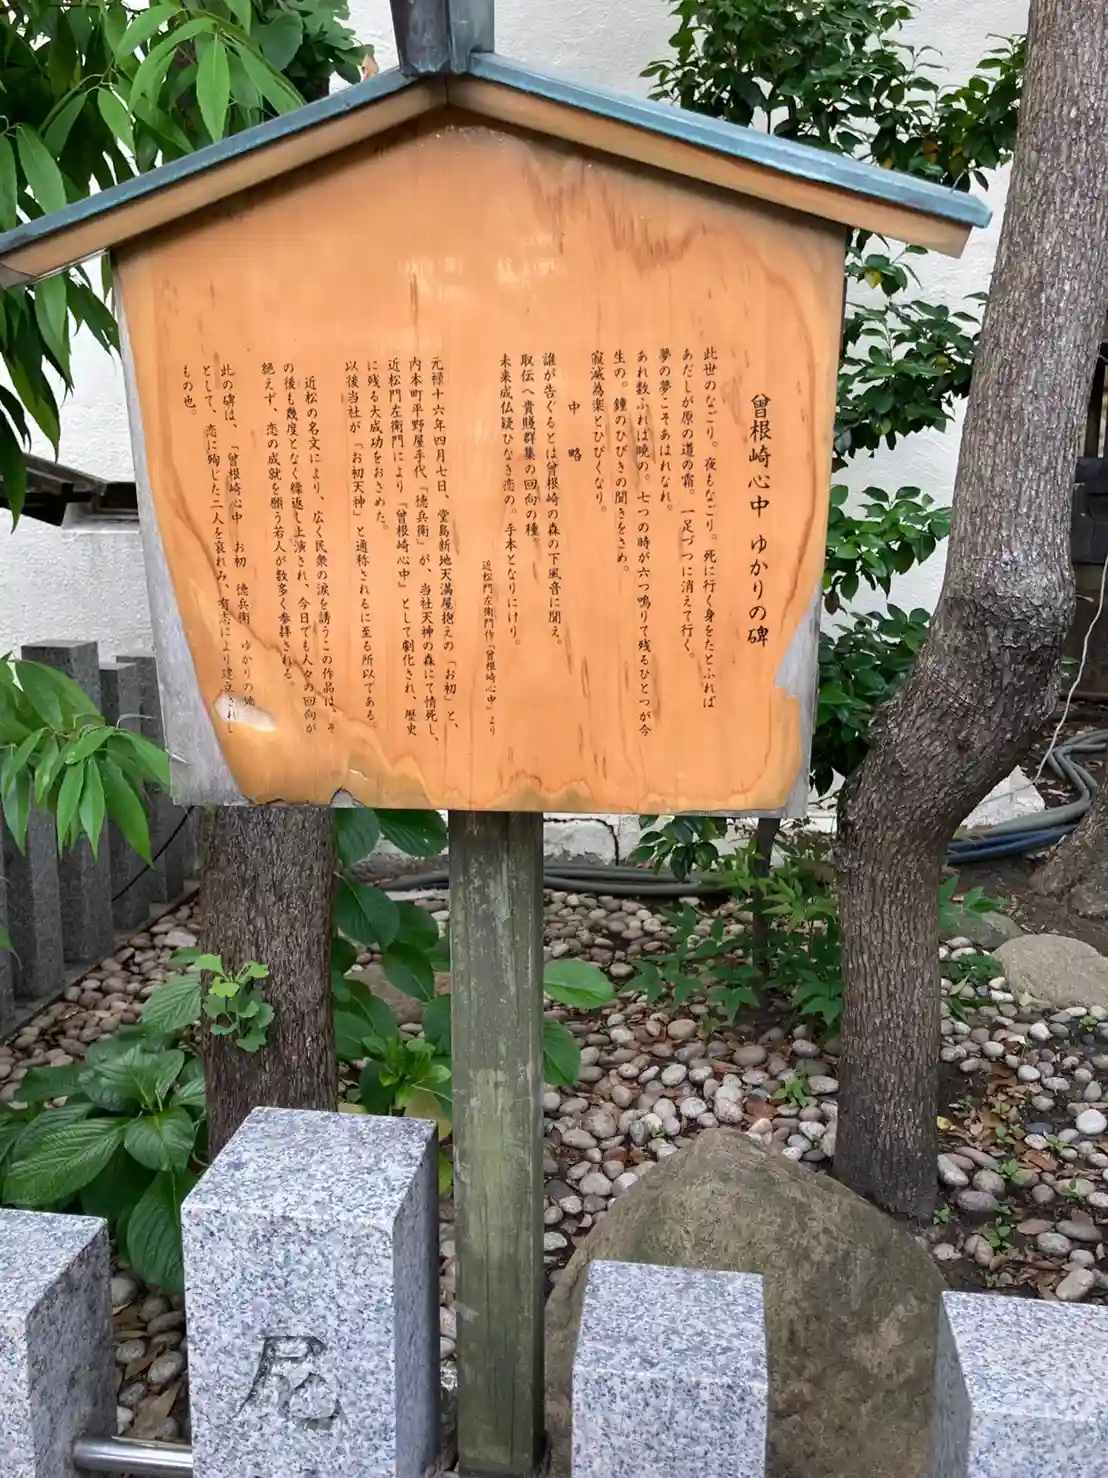 曾根崎心中 ゆかりの碑
此世のなごり。夜もなごり。死に行く身をたとふれば
あだしが原の道の霜。一足づつに消えて行く。
夢の夢こそあはれなれ。
あれ数ふれば暁の。七つの時が六つ鳴りて残るひとつが今
生の。鐘のひびきの聞きをさめ。
寂滅為楽とひびくなり。
中 略
誰が告ぐるとは曾根崎の森の下風音に聞え。
取伝へ貴賤群集の回向の種。
未来成仏疑ひなき恋の。手本となりにけり。
近松門左衛門作『曾根崎心中』より
元禄十六年四月七日、堂島新地天満屋抱えの「お初」と、
内本町平野屋手代、「徳兵衛」が、当社天神の森にて情死し、
近松門左衛門により、『曾根崎心中』として劇化され、歴史
に残る大成功をおさめた。
以後当社が、「お初天神」と通称されるに至る所以である。
近松の名文により、広く民衆の涙を誘うこの作品は、そ
の後も幾度となく繰返し上演され、今日でも人々の回向が
絶えず、恋の成就を願う若人が数多く参拝される。
此の碑は、「曾根崎心中 お初 徳兵衛 ゆかりの地」
として、恋に殉じた二人を哀れみ、有志により建立されし
もの也。
尾